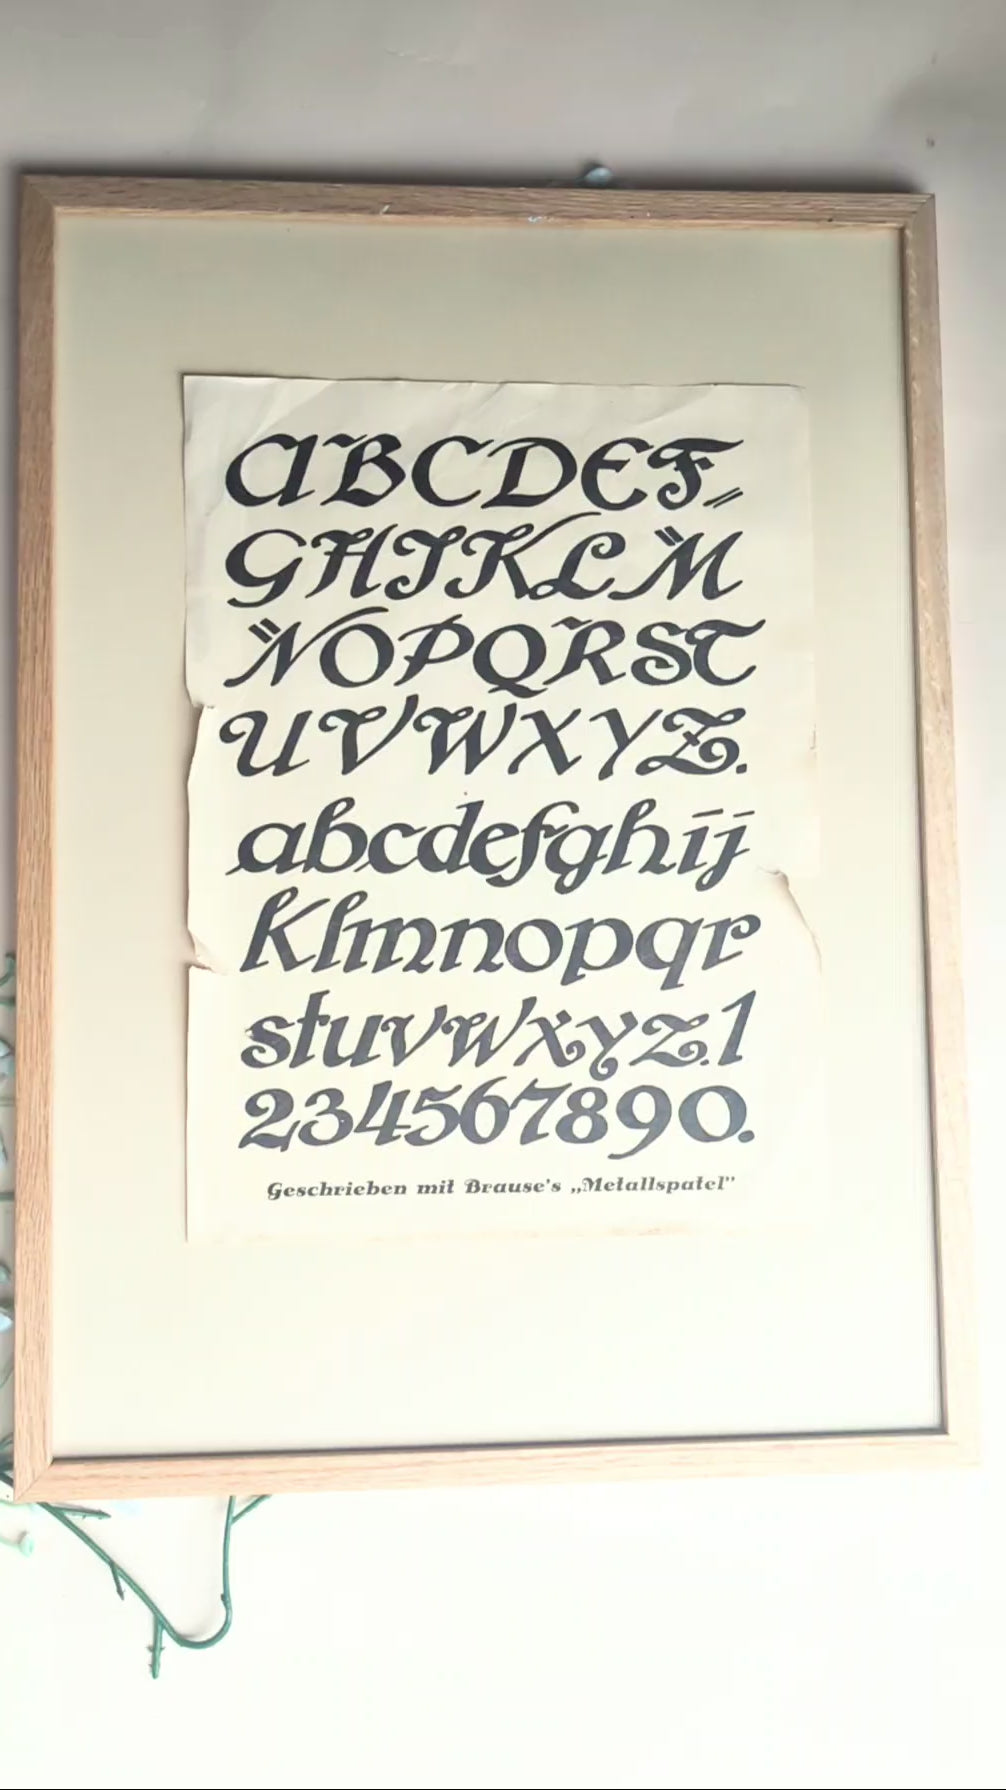 ABCDEF
GHIKLM
NOPQRST
UVWXYZ.
abcdefghij
klmnopqr
stuvwxyz.1
234567890.
Geschrieben mit Brause's „Metallspatel”